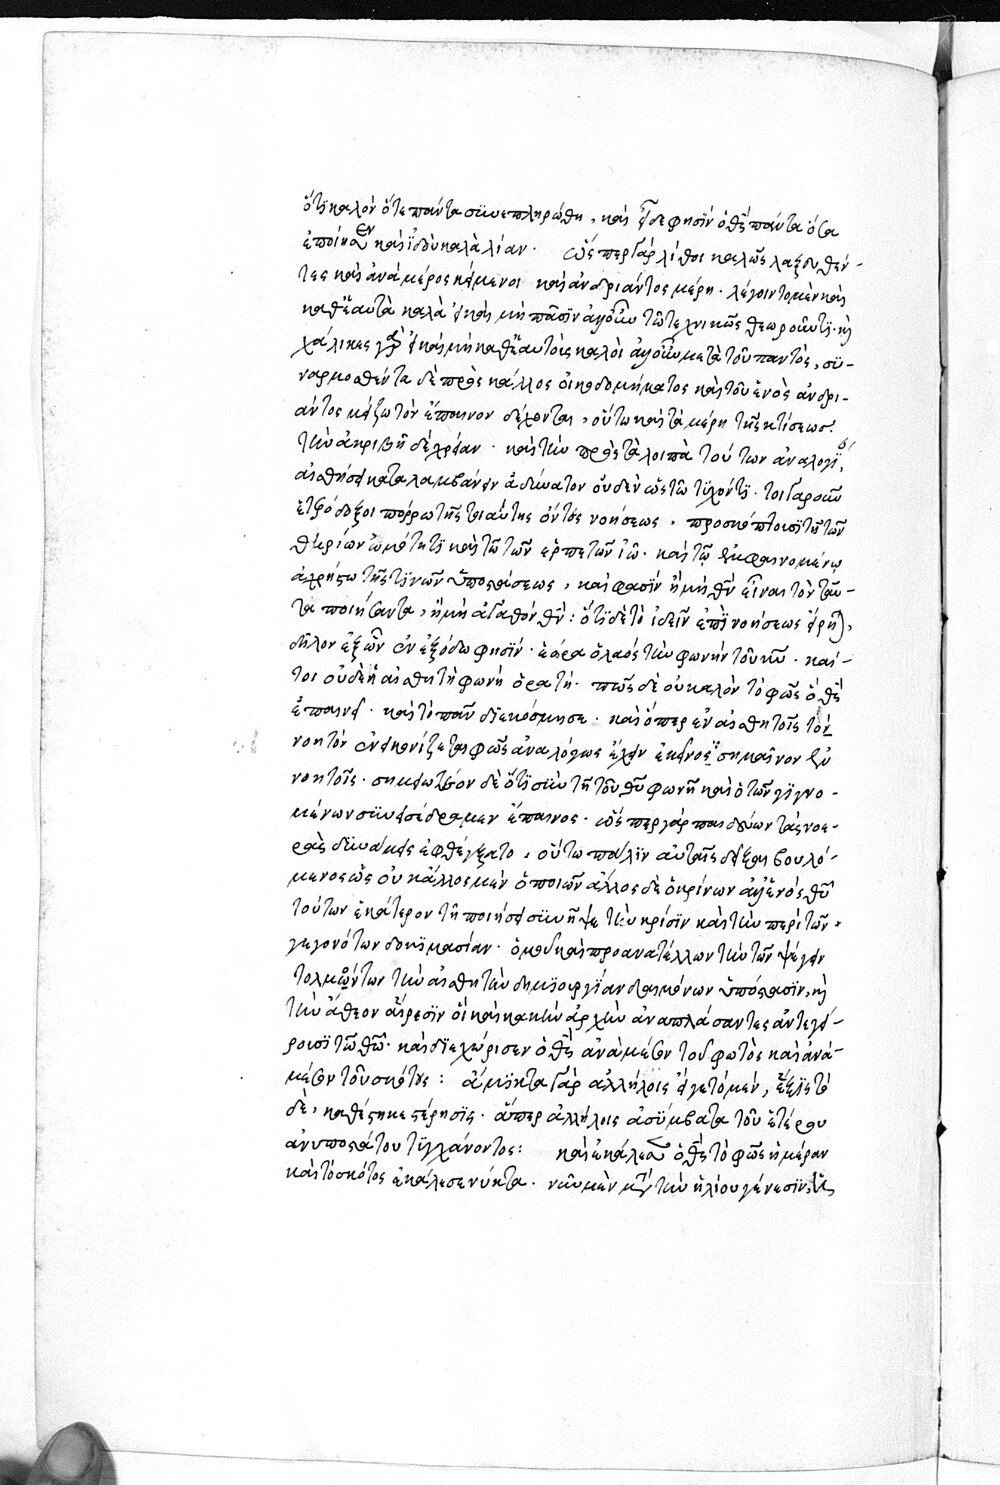 ὅτι καλόν ὅτε πάντα συνεπληρώθη, καὶ εἶδε φησὶν ὁ θεὸς πάντα ὅσα
ἐποίησεν καὶ ἰδοὺ καλὰ λίαν. ὥσπερ γὰρ λίθοι καλῶς λαξευθέν-
τες καὶ ἀνὰ μέρος κείμενοι καὶ ἀνδριάντος μέρη. λέγοιντο μὲν καὶ
καθ' ἑαυτὰ καλὰ εἰ καὶ μὴ πᾶσιν τῷ τεχνικῶς θεωροῦντι. καὶ
χάλικες γὰρ εἰ καὶ μὴ καθ' ἑαυτοὺς καλοὶ μετὰ τοῦ παντὸς, συ-
ναρμοσθέντα δὲ πρὸς κάλλος οἰκοδομήματος καὶ τοῦ ἑνὸς ἀνδρι-
άντος μείζω τὸν ἔπαινον δέχονται, οὕτω καὶ τὰ μέρη τῆς κτίσεως.
τὴν ἀκριβῆ δὲ χρείαν. καὶ τὴν πρὸς τὰ λοιπὰ τούτων ἀναλογί
αἰσθήσει καταλαμβάνειν ἀδύνατον οὐδὲν ὡς τῷ τυχόντι. τοιγαροῦν
ἑτερόδοξοι πόρρω τῆς τοιαύτης ὄντες νοήσεως, προσκόπτουσι τῇ τῶν
θηρίων ὠμότητι καὶ τῷ τῶν ἑρπετῶν ἰῷ. καὶ τῷ ἐκφαινομένῳ
ἀχρήστῳ τῆς τινῶν ὑποστάσεως, καὶ φασὶν ἢ μὴ θεὸν εἶναι τὸν ταῦ-
τα ποιήσαντα, ἢ μὴ ἀγαθὸν θεόν: ὅτι δὲ τὸ ἰδεῖν ἐπὶ νοήσεως εἴρηται,
δῆλον ἐξ ὧν ἐν ἐξόδῳ φησὶν. ἑώρα ὁ λαὸς τὴν φωνὴν τοῦ κυ. καί-
τοι οὐδὲ ἡ αἰσθητὴ φωνὴ ὁρατή. πῶς δὲ οὐ καλὸν τὸ φῶς ὁ θεὸς
ἐπαινεῖ. καὶ τὸ πᾶν διεκόσμησε. καὶ ὅπερ ἐν αἰσθητοῖς τὸν
νοητὸν εἰκονίζεται φῶς ἀναλόγως ἔχειν ἐκεῖνος σημαῖνον ἐν
νοητοῖς. σημειωτέον δὲ ὅτι σὺν τῇ τοῦ θυ φωνῇ καὶ ὁ τῶν γιγνο-
μένων συνεισέδραμεν ἔπαινος. ὥσπερ γὰρ παιδεύων τὰς νοε-
ρὰς δυνάμεις ἐφθέγξατο, οὕτω πάλιν αὐτὰς δεῖξαι βουλό-
μενος ὡς οὐκ ἄλλος μὲν ὁ ποιῶν ἄλλος δὲ ὁ κρίνων ἀλλ' ἑνὸς θυ
τούτων ἑκάτερον τῇ ποιήσει συνῆψε τὴν κρίσιν καὶ τὴν περὶ τῶν
γεγονότων δοκιμασίαν. ὁμοῦ καὶ προανατέλλων τὴν τῶν ψέγειν
τολμώντων τὴν αἰσθητὴν δημιουργίαν δαιμόνων ὑπόστασιν, καὶ
τὴν ἄθεον αἵρεσιν οἳ καὶ κακὴν ἀρχὴν ἀναπλάσαντες ἀντεγεί-
ρουσι τῷ θῷ. καὶ διεχώρισεν ὁ θς ἀνὰ μέσον τοῦ φωτὸς καὶ ἀνὰ
μέσον τοῦ σκότους: ἄμικτα γὰρ ἀλλήλοις εἰ γε τὸ μὲν, ἕξις τὸ
δὲ, καθέστηκε στέρησις. ἅπερ ἀλλήλοις ἀσύμβατα τοῦ ἑτέρου
ἀνυποστάτου τυγχάνοντος: καὶ ἐκάλεσεν ὁ θς τὸ φῶς ἡμέραν
καὶ τὸ σκότος ἐκάλεσε νύκτα. νῦν μὲν μετὰ τὴν ἡλίου γένεσιν,